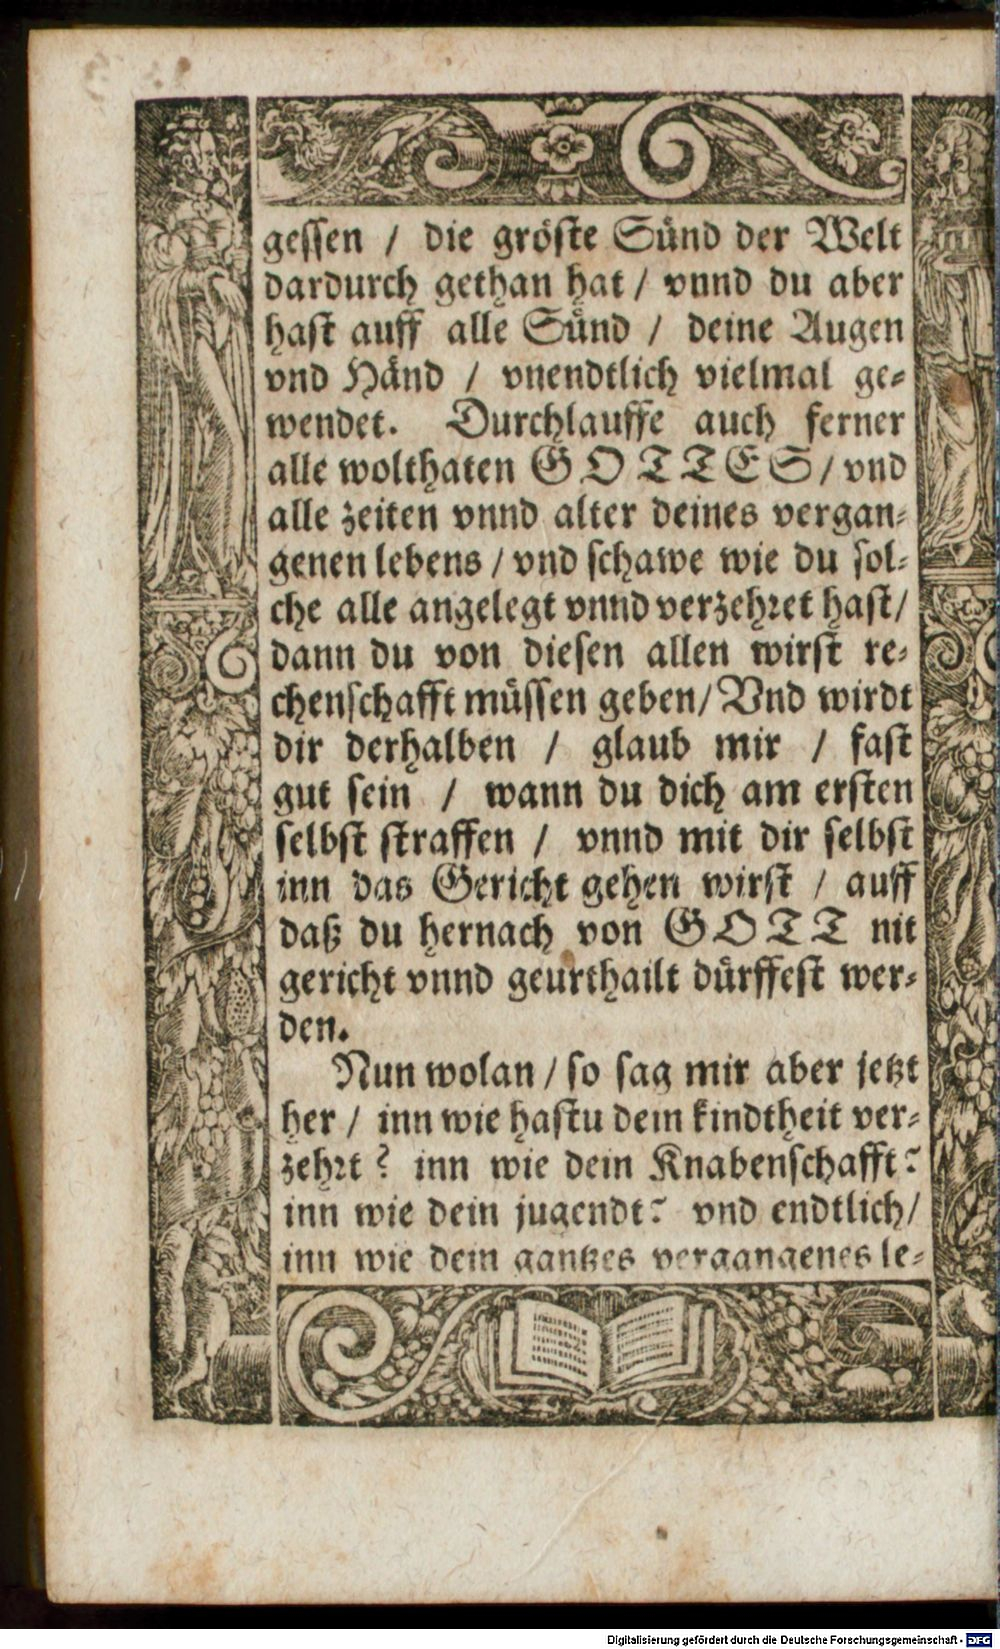 gessen / die gröste Sünd der Welt
dardurch gethan hat / vnnd du aber
hast auff alle Sünd / deine Augen
vnd Händ / vnendtlich vielmal ge-
wendet. Durchlauffe auch ferner
alle wolthaten GOTTES / vnd
alle zeiten vnnd alter deines vergan-
genen lebens / vnd schawe wie du sol-
che alle angelegt vnnd verzehret hast /
dann du von diesen allen wirst re-
chenschafft müssen geben / Vnd wirdt
dir derhalben / glaub mir / fast
gut sein / wann du dich am ersten
selbst straffen / vnnd mit dir selbst
inn das Gericht gehen wirst / auff
daß du hernach von GOTT nit
gericht vnnd geurthailt dürffest wer-
den.
Nun wolan / so sag mir aber jetzt
her / inn wie hastu dein kindtheit ver-
zehrt? inn wie dein Knabenschafft?
inn wie dein jugendt? vnd endtlich /
inn wie dein gantzes vergangenes le-
Digitalisierung gefördert durch die Deutsche Forschungsgemeinschaft - DFG